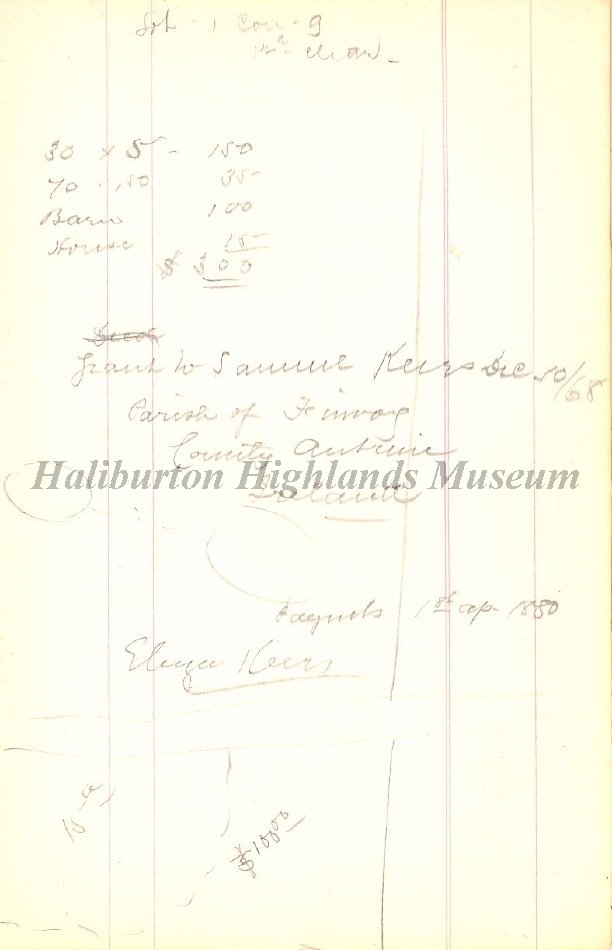 Lot - 1 Con - 9
30 x 5 - 150
70 - .50 35
Barn 100
House 15
$ 300
Deed
Grant to Samuel Keers Dec 50/68
Parish of Finvoy
County Antrim
Ireland
Haliburton Highlands Museum
1st ap - 1880
Eliza Keers
10
$100.00